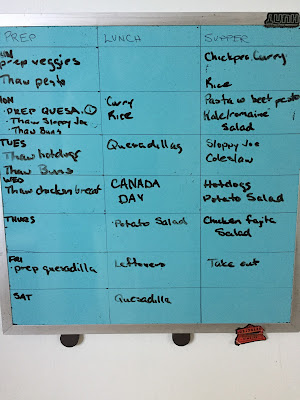 PREP LUNCH SUPPER
SUN
prep veggies
Thaw pesto
Chickpea Curry
Rice
MON
PREP QUESA. ①
Thaw Sloppy Joe
Thaw Buns
Curry
Rice
Pasta w beet pesto
Kale/romaine
Salad
TUES
Thaw hotdogs
Thaw Buns
Quesadillas
Sloppy Joe
Coleslaw
WED
Thaw chicken breast
CANADA
DAY
Hotdogs
Potato Salad
THURS
Potato Salad
Chicken fajita
Salad
FRI
prep quesadilla
Leftovers
Take out
SAT
Quesadilla